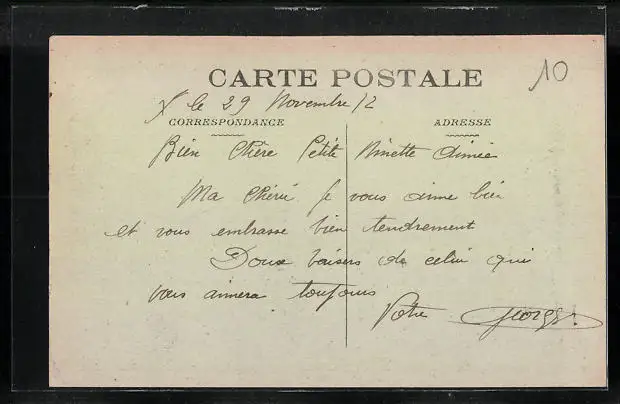 10
CARTE POSTALE
X le 29 Novembre 12
CORRESPONDANCE
ADRESSE
Bien Chère Petite Ninette Aimée
Ma Chérie Je vous aime bien
et vous embrasse bien tendrement
Doux baisers de celui qui
vous aimera toujours
Votre Georges